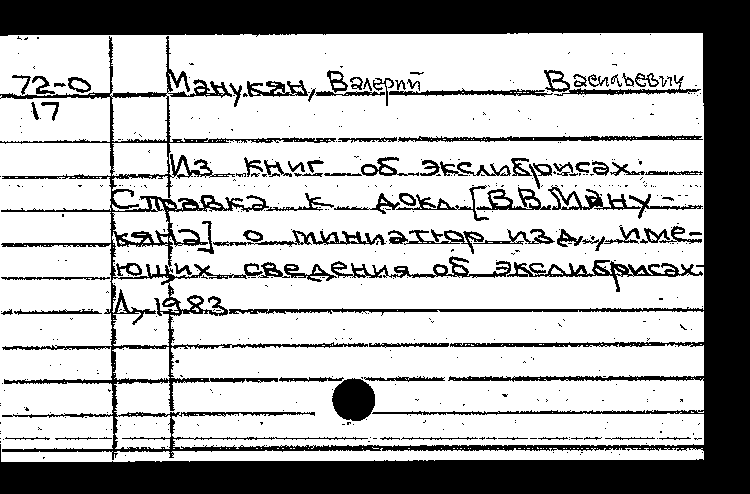 72-0 Манукян, Валерий Васильевич
17
Из книг об экслибрисах:
Справка к докл. [В.В. Ману-
кяна] о миниатюр изд., име-
ющих сведения об экслибрисах.
Л., 1983